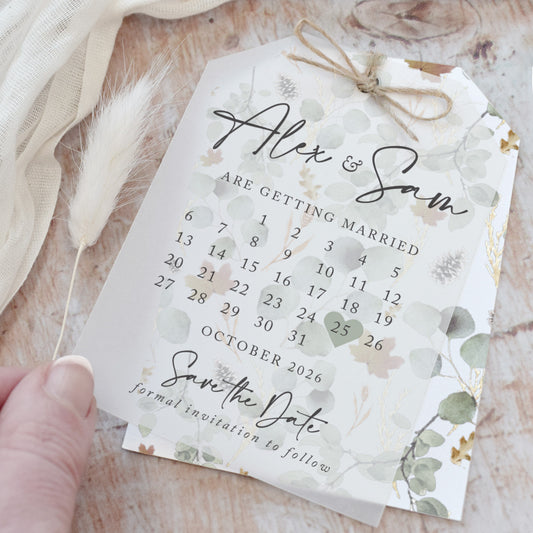 Alex & Sam
ARE GETTING MARRIED
1 2 3 4 5
6 7 8 9 10 11 12
13 14 15 16 17 18 19
20 21 22 23 24 25 26
27 28 29 30 31
OCTOBER 2026
Save the Date
formal invitation to follow